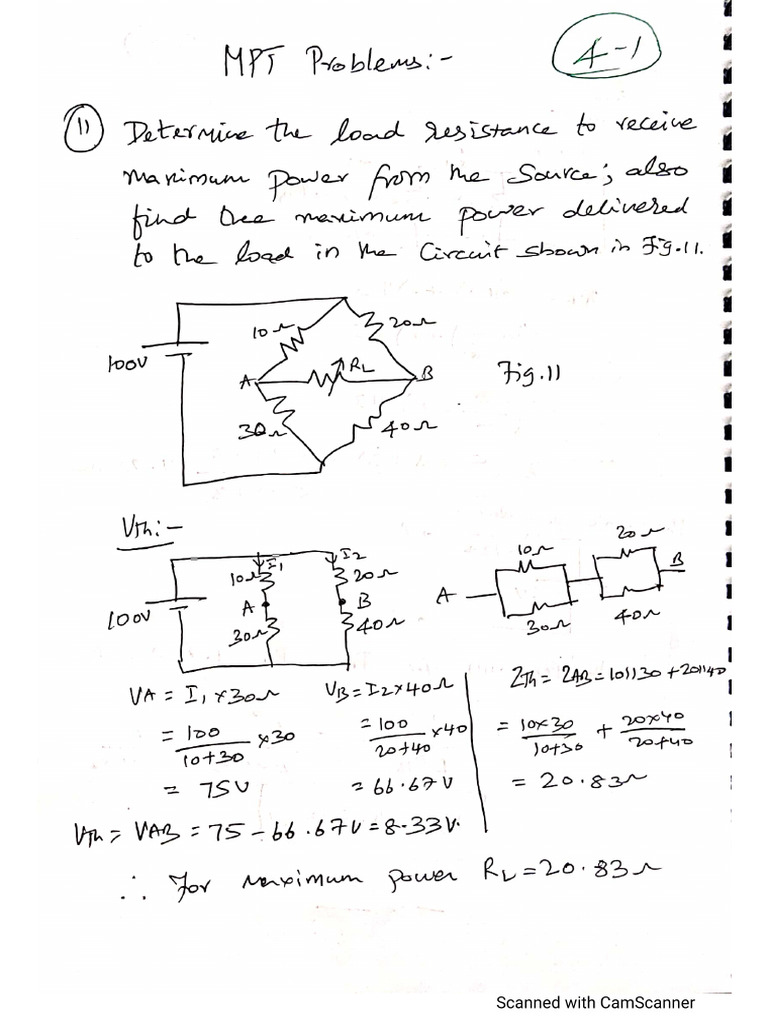 MPT Problems:-
4-1
11) Determine the load resistance to receive
maximum power from the source; also
find the maximum power delivered
to the load in the circuit shown in Fig.11.
10Ω
20Ω
100V
A
RL
B
Fig.11
30Ω
40Ω
Vth:-
I1
I2
10Ω
20Ω
100V
A
B
30Ω
40Ω
10Ω
20Ω
A
B
30Ω
40Ω
VA = I1 x 30Ω
= 100/(10+30) x 30
= 75V
VB = I2 x 40Ω
= 100/(20+40) x 40
= 66.67V
ZTh = ZAB = 10||30 + 20||40
= 10x30/(10+30) + 20x40/(20+40)
= 20.83Ω
VTh = VAB = 75 - 66.67V = 8.33V.
∴ For maximum power RL = 20.83Ω
Scanned with CamScanner